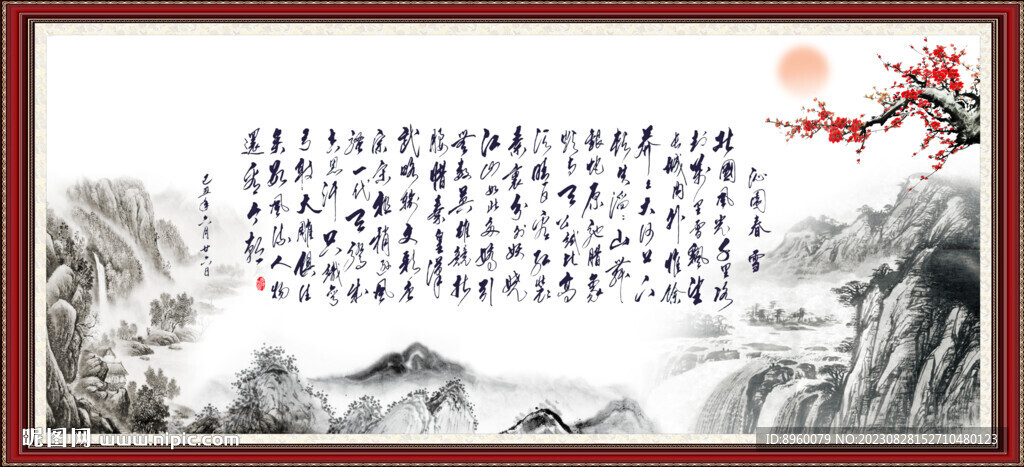 沁園春 雪
北國風光千里冰
封萬里雪飄望
長城內外惟餘
莽々大河上下
頓失滔々山舞
銀蛇原馳腊象
欲与天公試比高
須晴日看红装
素裹分外妖娆
江山如此多嬌引
無數英雄競折
腰惜秦皇漢
武略輸文彩唐
宗宋祖稍遜風
騷一代天骄成
吉思汗只識彎
弓射大雕俱往
矣數風流人物
還看今朝
己丑年六月廿六日
昵图网 www.nipic.com
ID:8960079 NO:20230828152710480123